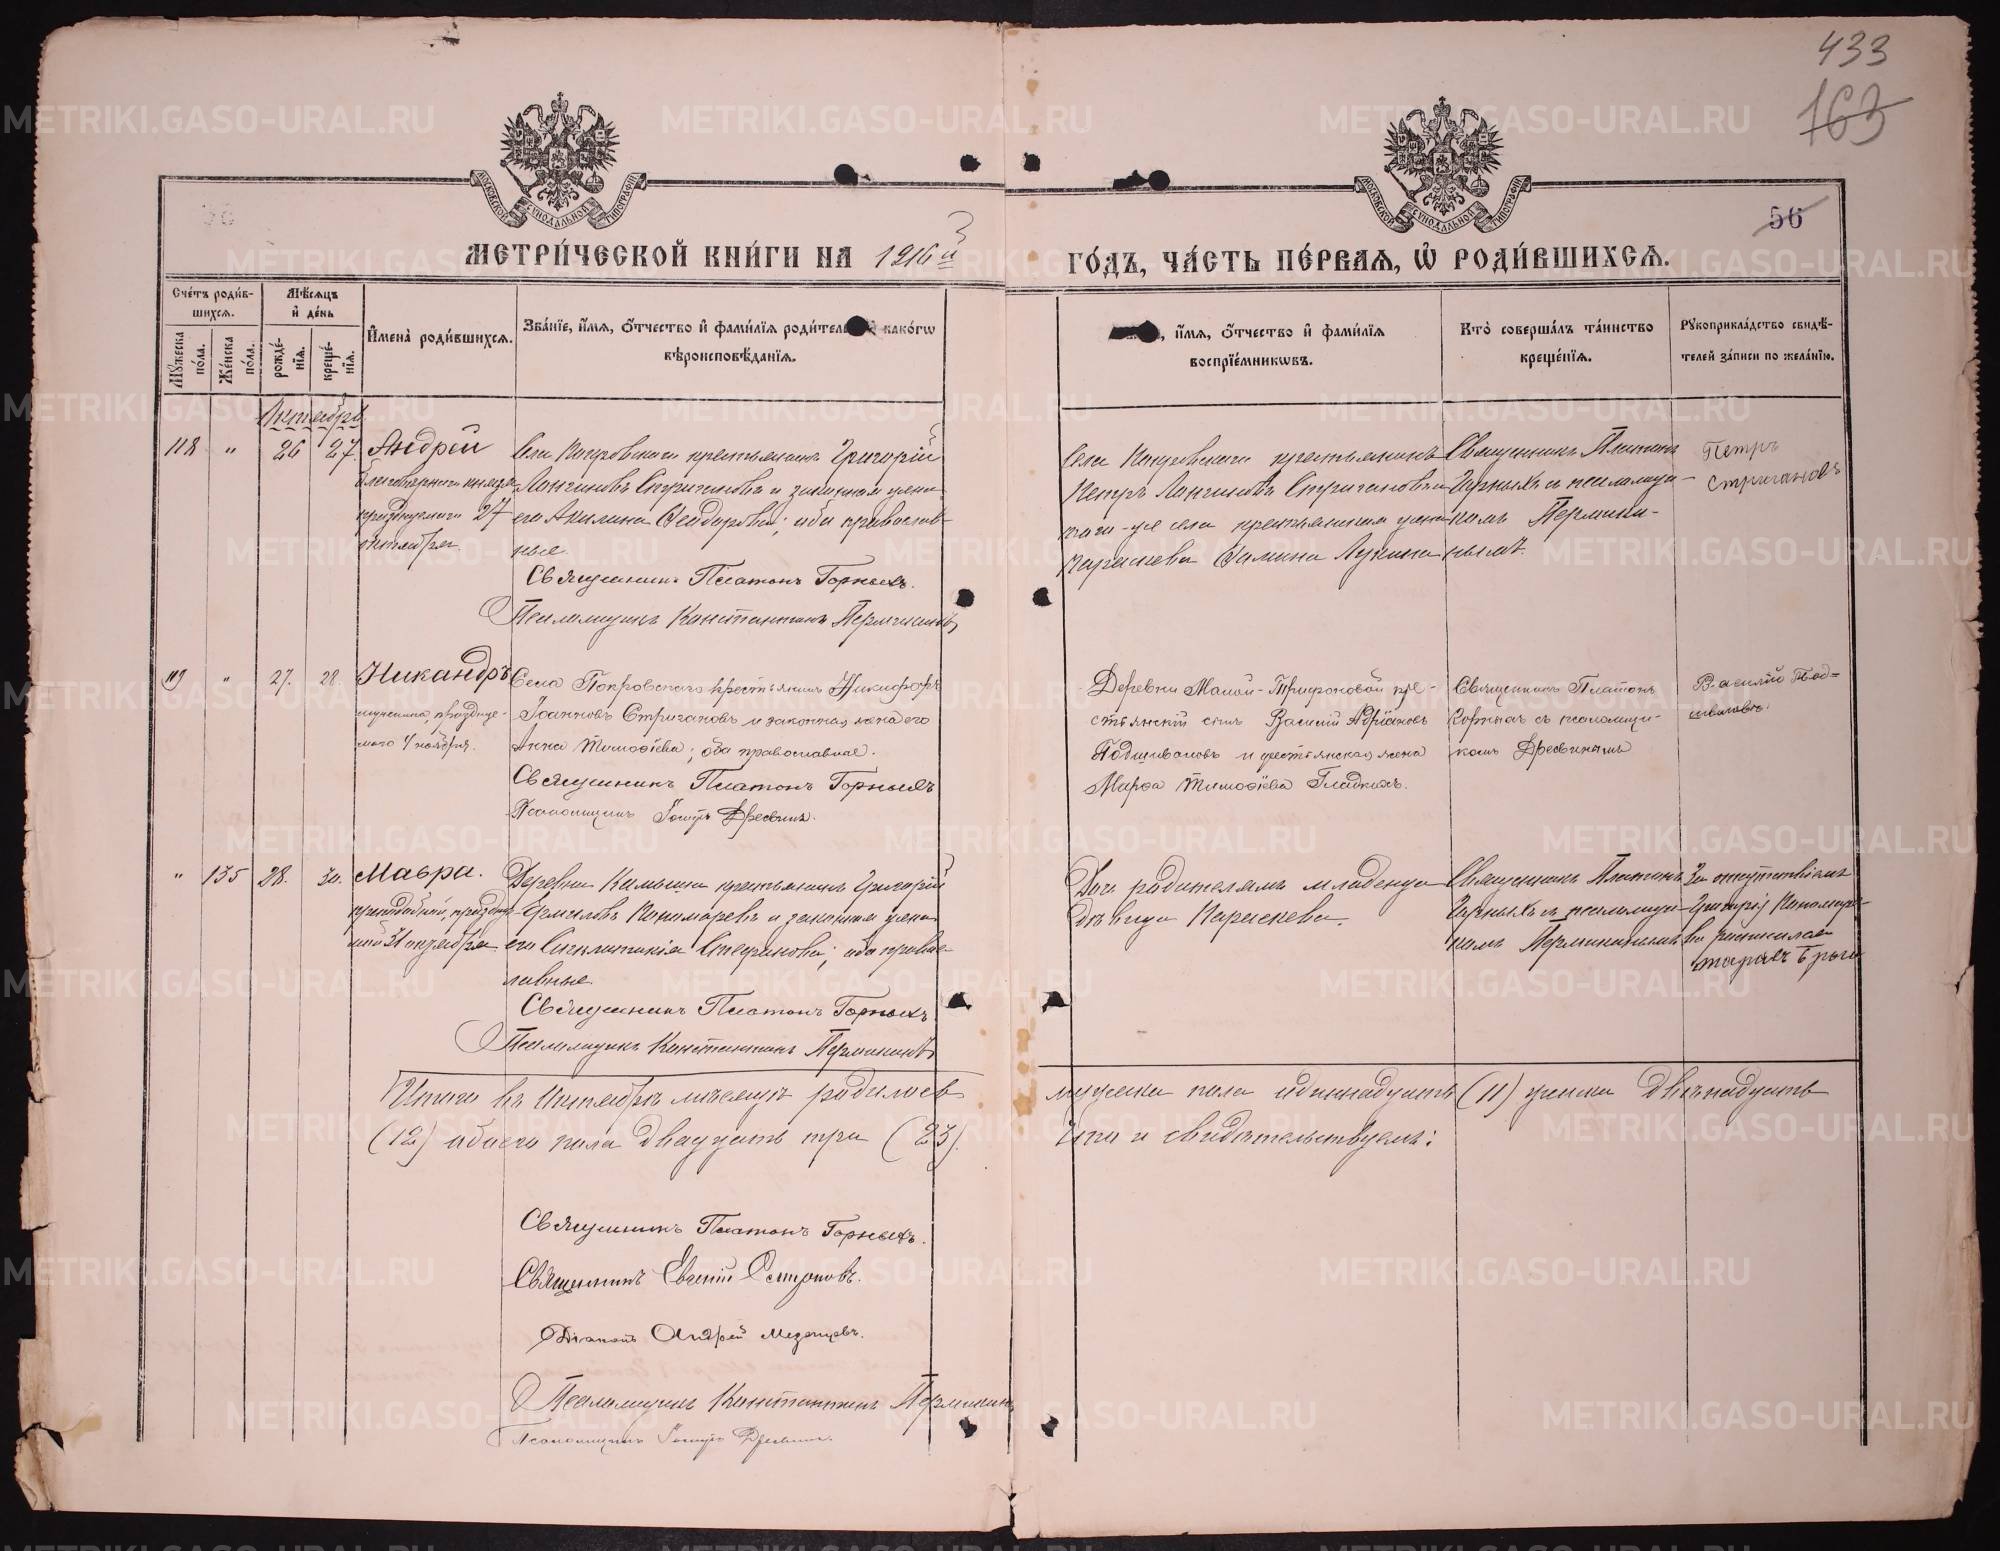 433
163
56
МОСКОВСКОЙ СѴНОДАЛЬНОЙ ТИПОГРАФІИ
МОСКОВСКОЙ СѴНОДАЛЬНОЙ ТИПОГРАФІИ
МЕТРИ́ЧЕСКОЙ КНИ́ГИ НА 1916й
ГО́ДЪ, ЧА́СТЬ ПЕ́РВАѦ, Ѡ РОДИ́ВШИХСѦ.
Сче́тъ роди́в-
шихсѧ.
Мѣ́сѧцъ
и́ де́нь
Мꙋ́жеска по́ла.
Же́нска по́ла.
рожде́-
нїѧ.
креще́-
нїѧ.
И҆мена̀ роди́вшихсѧ.
Зва́нїе, и҆́мѧ, ѻ҆́тчество и҆ фами́лїѧ роди́тел како́гѡ
вѣроисповѣ́данїѧ.
, и҆́мѧ, ѻ҆́тчество и҆ фами́лїѧ
воспрїе́мникѡвъ.
Кто̀ соверша́лъ та́инство
креще́нїѧ.
Рꙋкоприкла́дство свидѣ́-
телей за́писи по жела́нїю.
Октября
118 " 26 27. Андрей
благовернаго князя
празднуемаго 27
октября.
Села Покровскаго крестьянинъ Григорій
Лонгиновъ Стригановъ и законная жена
его Акилина Ѳеодорова; оба православ-
ные.
Священникъ Платонъ Горныхъ.
Псаломщикъ Константинъ Пермикинъ
Села Покровскаго крестьянинъ
Петръ Лонгиновъ Стригановъ и
того-же села крестьянская жена
Параскева Лукина
Священникъ Платонъ
Горныхъ съ псаломщи-
комъ Пермики-
нымъ.
Петръ
Стригановъ
119 " 27. 28. Никандръ
мученика, праздну-
емаго 4 ноября.
Села Покровскаго крестьянинъ Никифоръ
Іоанновъ Стригановъ и законная жена его
Анна Тимофіева; оба православные.
Священникъ Платонъ Горныхъ
Псаломщикъ Дресвинъ.
Деревни Малой-Трифоновой кре-
стьянскій сынъ Василій Адріановъ
Подшиваловъ и крестьянская жена
Марфа Тимофіева Гладкихъ.
Священникъ Платонъ
Горныхъ съ псаломщи-
комъ Дресвинымъ
Василій Под-
шиваловъ.
" 135 28. 30. Мавра.
преподобной, праздну-
мой 31 октября
Деревни Камышки крестьянинъ Григорій
Ермиловъ Пономаревъ и законная жена
его Синклитикія Стефанова; оба правос-
лавные.
Священникъ Платонъ Горныхъ
Псаломщикъ Константинъ Пермикинъ
родителямъ младенца
дѣвица Параскева.
Священникъ Платонъ
Горныхъ съ псаломщи-
комъ Пермикинымъ
За отсутствіемъ
Григорія Пономаре-
ва
Итого въ Октябрѣ мѣсяцѣ родилось
мужска пола одиннадцать (11) женска двѣнадцать
(12) обоего пола двадцать три (23).
и свидѣтельствуемъ:
Священникъ Платонъ Горныхъ.
Священникъ Евгеній
Діаконъ Андрей
Псаломщикъ Константинъ Пермикинъ
Псаломщикъ Дресвинъ.
METRIKI.GASO-URAL.RU